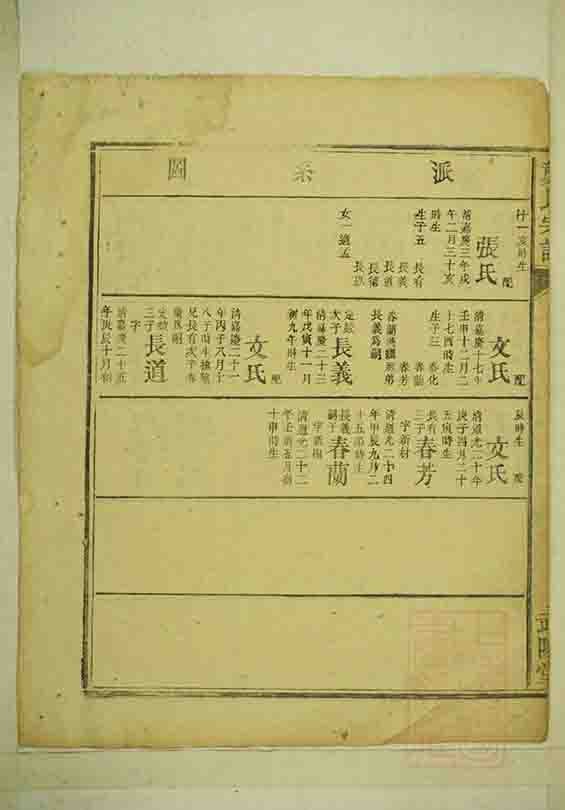 派系圖
行一亥時生
配
張氏
清嘉慶三年戊
午二月三十亥
時生
生子五
長有
長義
長道
長德
女一適孟
配
文氏
清嘉慶十七年
壬申十二月二
十七酉時生
生子三
春化
春蘭
春芳
長義為嗣
次子長義
清嘉慶二十三
年戊寅十一月
初九午時生
配
文氏
清嘉慶二十一
年丙子八月十
八子時生
兄長有次子春
蘭為嗣
三子長道
字
清嘉慶二十五
年庚辰十月初
辰時生
配
文氏
清道光二十年
庚子四月二十
五寅時生
長有
三子春芳
清道光二十四
年甲辰九月二
十五
時生
長義
嗣子春蘭
清道光二十二
年壬寅五月初
十申時生